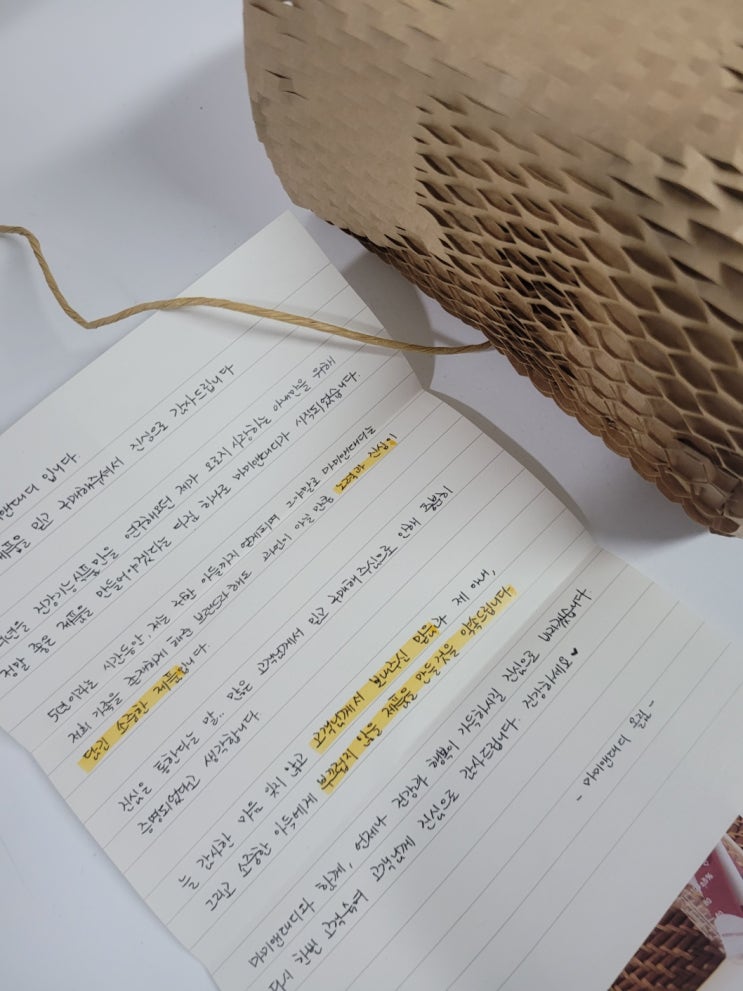 마미앤대디 입니다.
제품을 믿고 구매해주셔서 진심으로 감사드립니다
건강기능식품만을 연구해왔던 제가 오로지 사랑하는 아내만을 위해
정말 좋은 제품을 만들어야겠다는 다짐 하나로 마미앤대디가 시작되었습니다.
5년이라는 시간동안, 제눌 귀한 아들까지 얻게되며 그야말로 마미앤대디는
저희 가족을 존재하게 해준 브랜드라해도 과언이 아닐 만큼 노력과 진심이
담긴 소중한 제품입니다.
진심은 통한다는 말.. 많은 고객님께서 믿고 구매해주심으로 인해 충분히
증명되었다고 생각합니다.
늘 감사한 마음 잊지 않고 고객님께서 보내주신 믿음과 제 아내,
그리고 소중한 아들에게 부끄럽지 않을 제품을 만들것을 약속드립니다
마미앤대디와 함께, 언제나 건강과 행복이 가득하시길 진심으로 바라겠습니다
다시 한번 고객님께 진심으로 감사드립니다. 건강하세요♥
- 마미앤대디 올림 -